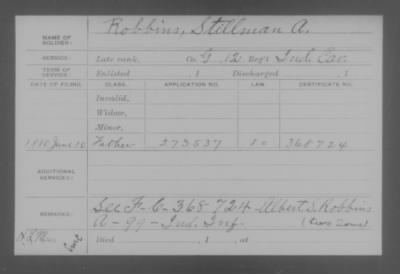 NAME OF SOLDIER: Robbins, Stillman A.
SERVICE: Late rank, Co. G, 12 Reg't Ind. Cav.
TERM OF SERVICE: Enlisted , 1 Discharged , 1
DATE OF FILING. CLASS. APPLICATION NO. LAW. CERTIFICATE NO.
Invalid,
Widow,
Minor,
1880 June 10 Father 273537 368724
ADDITIONAL SERVICES:
REMARKS: See F-C-368724 Albert S. Robbins
A-99-Ind. Inf. (two sons)
Died , 1 , at